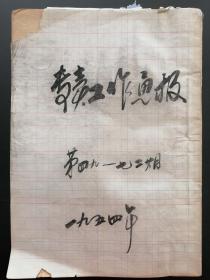 專卖工作通报
第四九—七二期
一九五四年